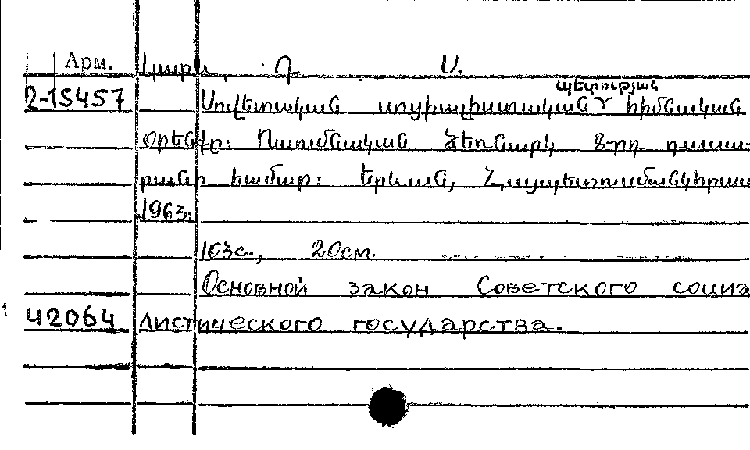 Арм. Կարպ Դ Ս.
պետության
2-15457 Սովետական սոցիալիստական V հիմնական
օրենքը: Ուսումնական ձեռնարկ 8-րդ դասա-
րանի համար: Երևան, Հայպետուսմանկհրատ
1963.
163с., 20см.
Основной закон Советского социа
42064 листического государства.